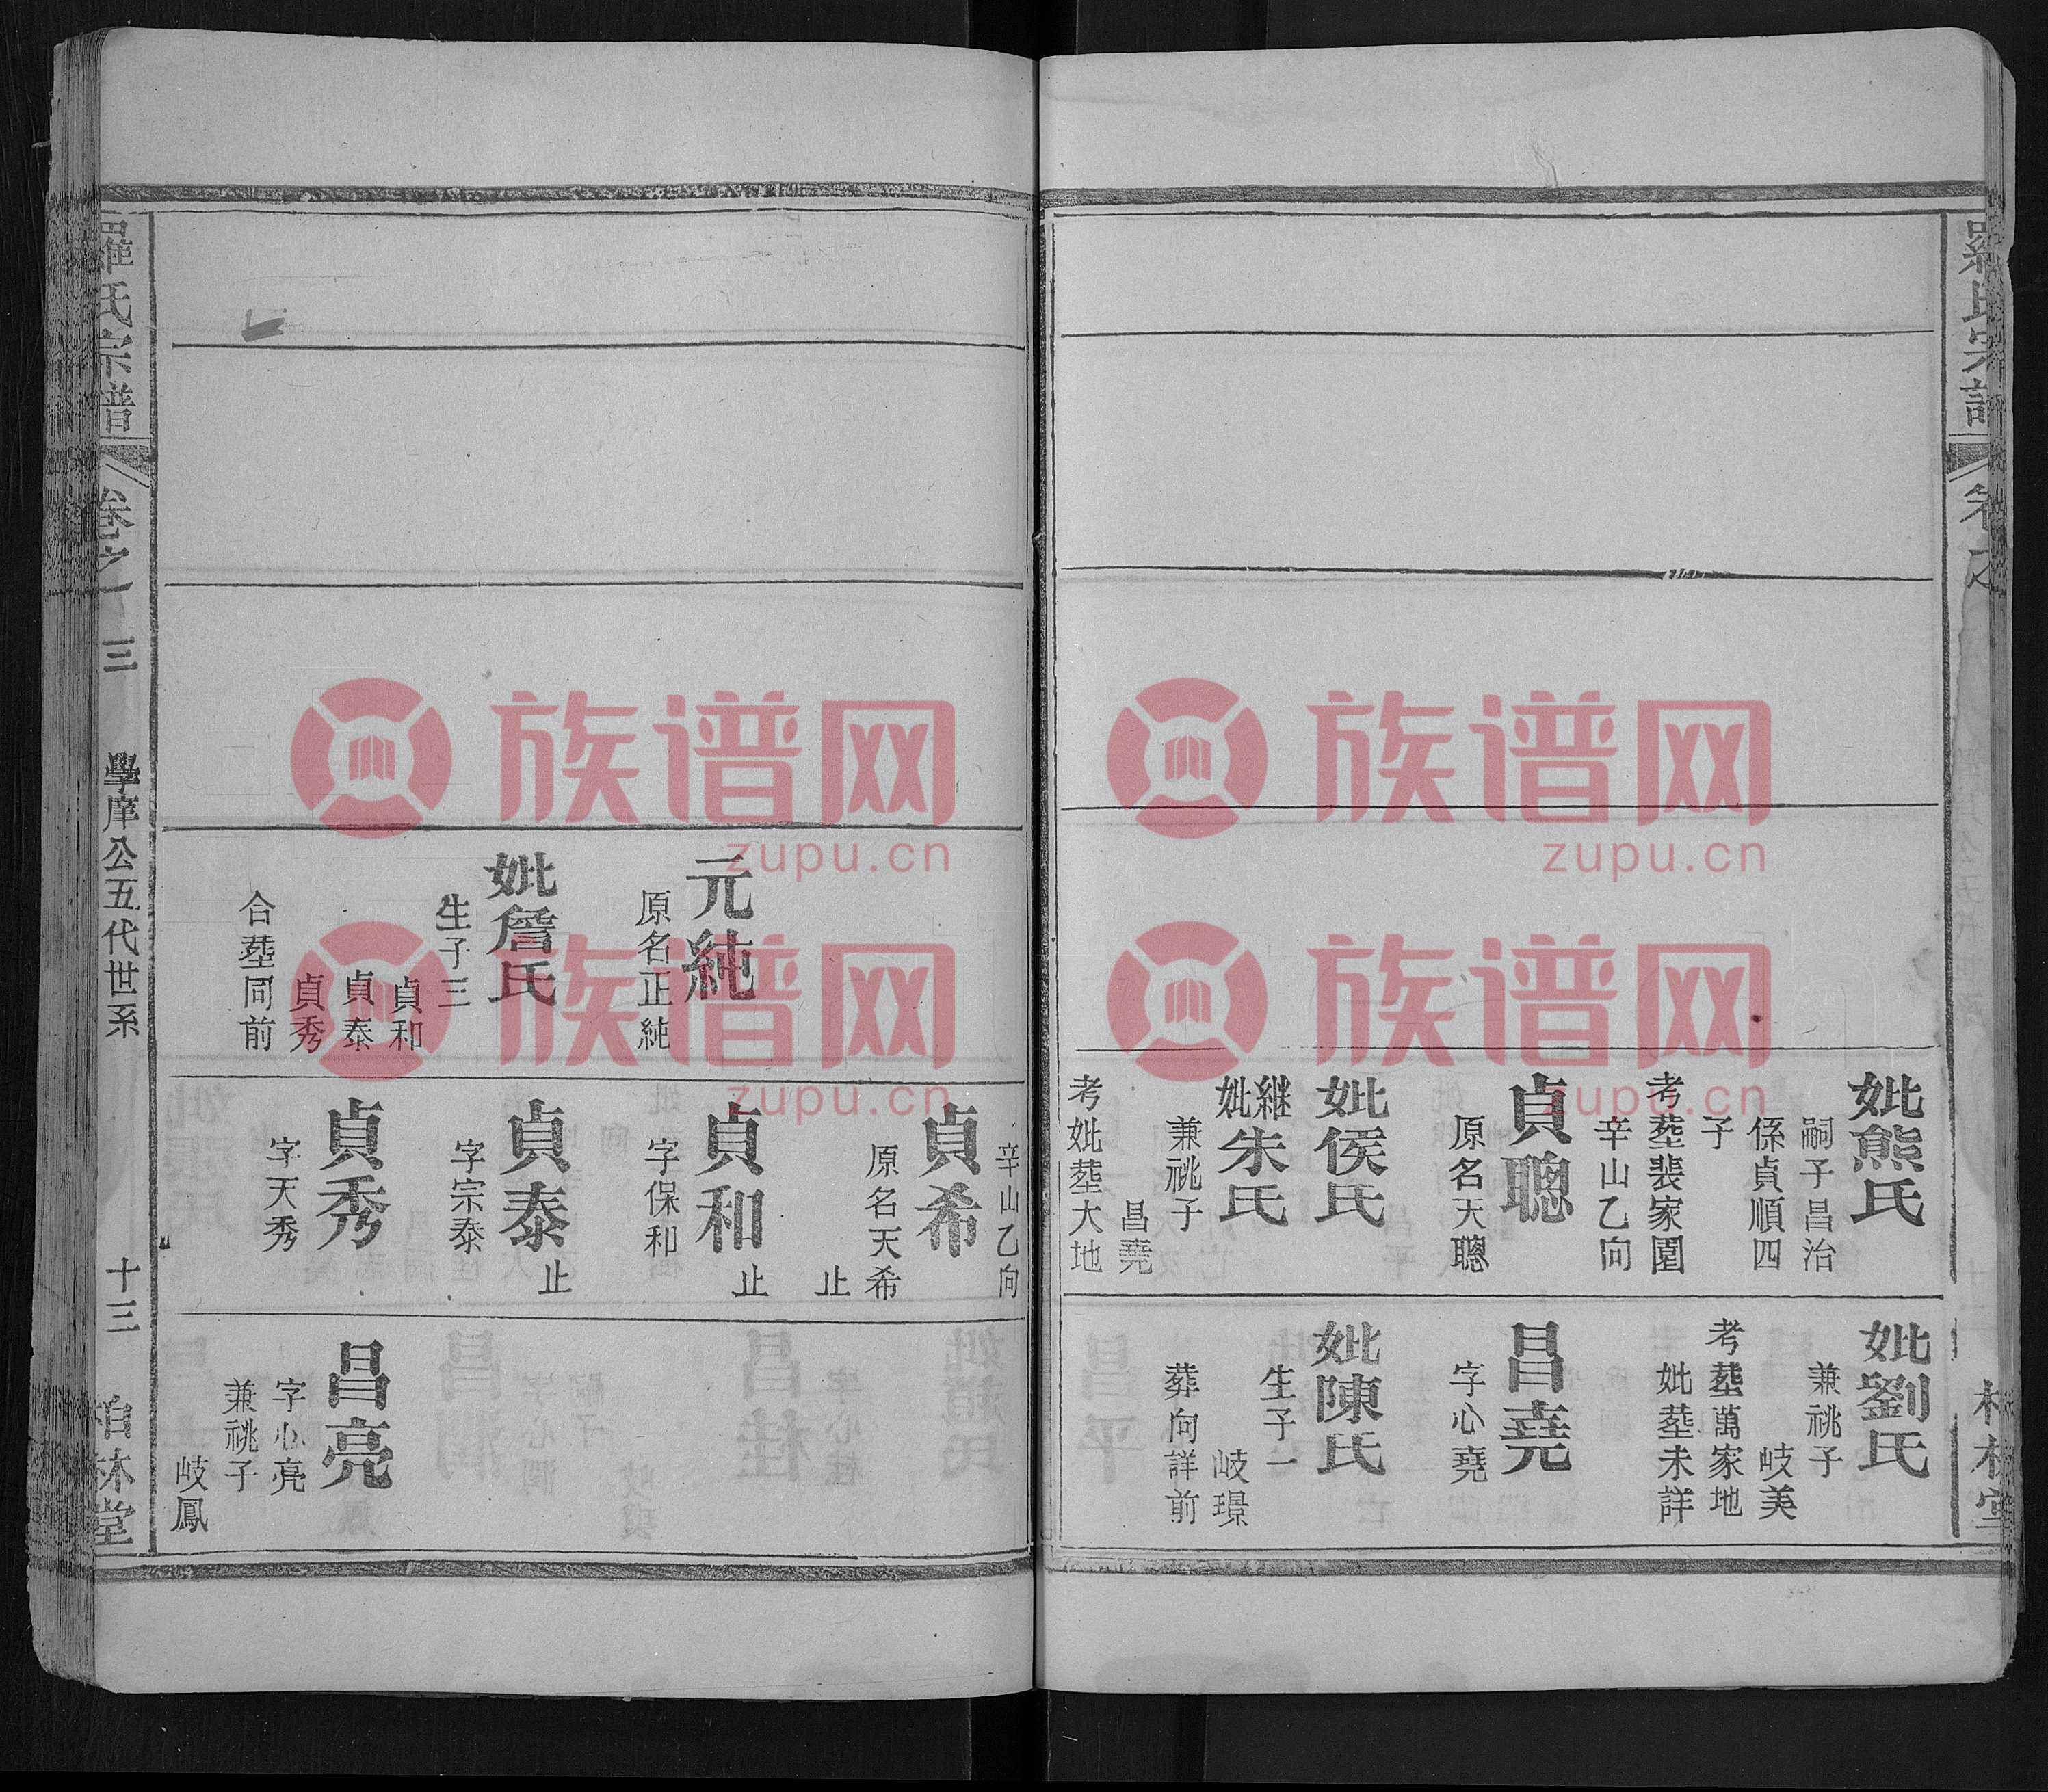 羅氏宗譜
妣熊氏
嗣子昌治
係貞順四
子
考塟裴家園
辛山乙向
貞聰
原名天聰
妣侯氏
継妣朱氏
兼祧子
昌堯
考妣塟大地
妣劉氏
兼祧子
岐美
考塟萬家地
妣塟未詳
昌堯
字心堯
妣陳氏
生子一
岐璟
葬向詳前
元純
原名正純
妣詹氏
生子三
貞和
貞泰
貞秀
合塟同前
辛山乙向
貞希
原名天希
止
貞和
止
字保和
貞泰
止
字宗泰
貞秀
字天秀
昌亮
字心亮
兼祧子
岐鳳
羅氏宗譜
卷之一
三
學庠公五代世系
十三
柏林堂
族谱网
zupu.cn
族谱网
zupu.cn
族谱网
zupu.cn
族谱网
zupu.cn